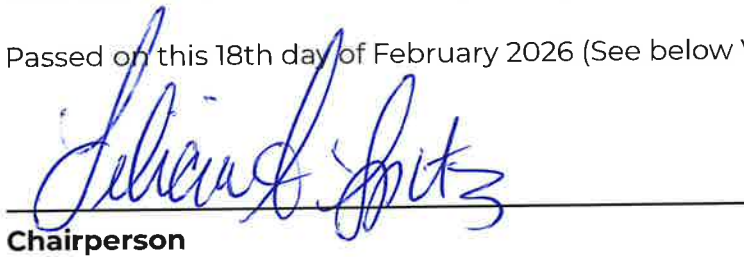 Passed on this 18th day of February 2026 (See below
Chairperson